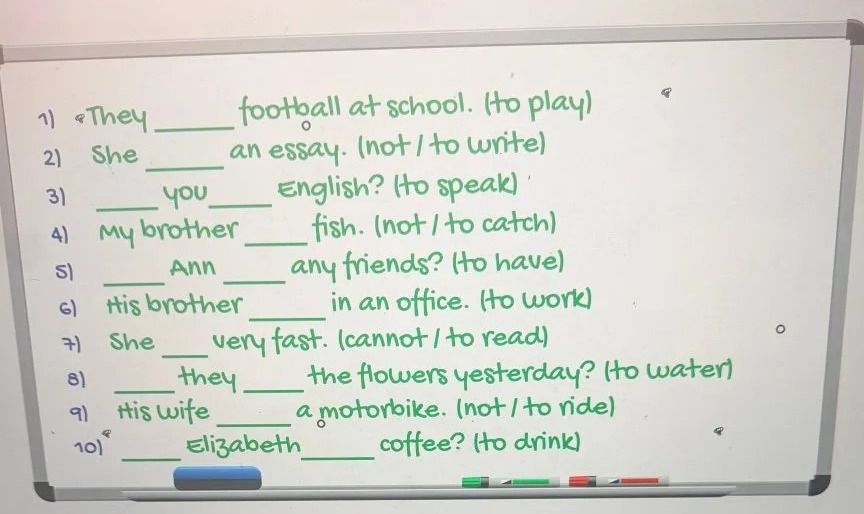 1) They ______ football at school. (to play)
2) She ______ an essay. (not / to write)
3) _____ you _____ English? (to speak)
4) My brother _____ fish. (not / to catch)
5) _____ Ann _____ any friends? (to have)
6) His brother ______ in an office. (to work)
7) She ____ very fast. (cannot / to read)
8) _____ they _____ the flowers yesterday? (to water)
9) His wife ______ a motorbike. (not / to ride)
10) _____ Elizabeth ______ coffee? (to drink)